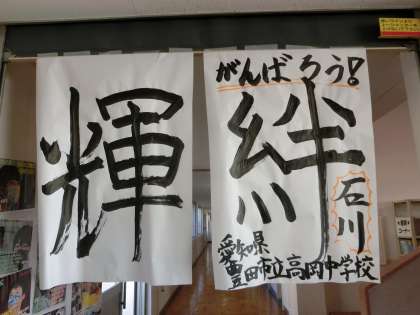 輝
がんばろう!
絆
石川
愛知県
豊田市立高岡中学校